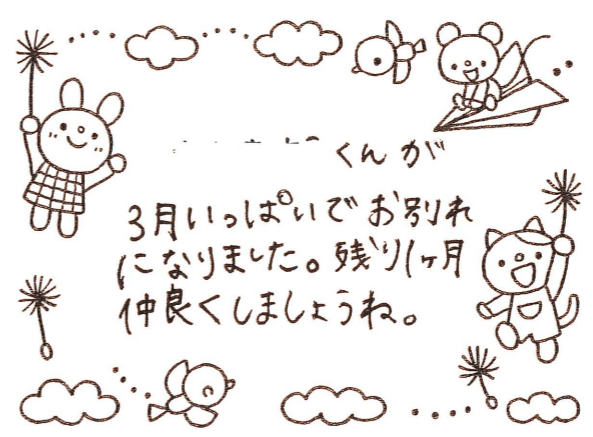 くんが
3月いっぱいでお別れ
になりました。残り1ヶ月
仲良くしましょうね。